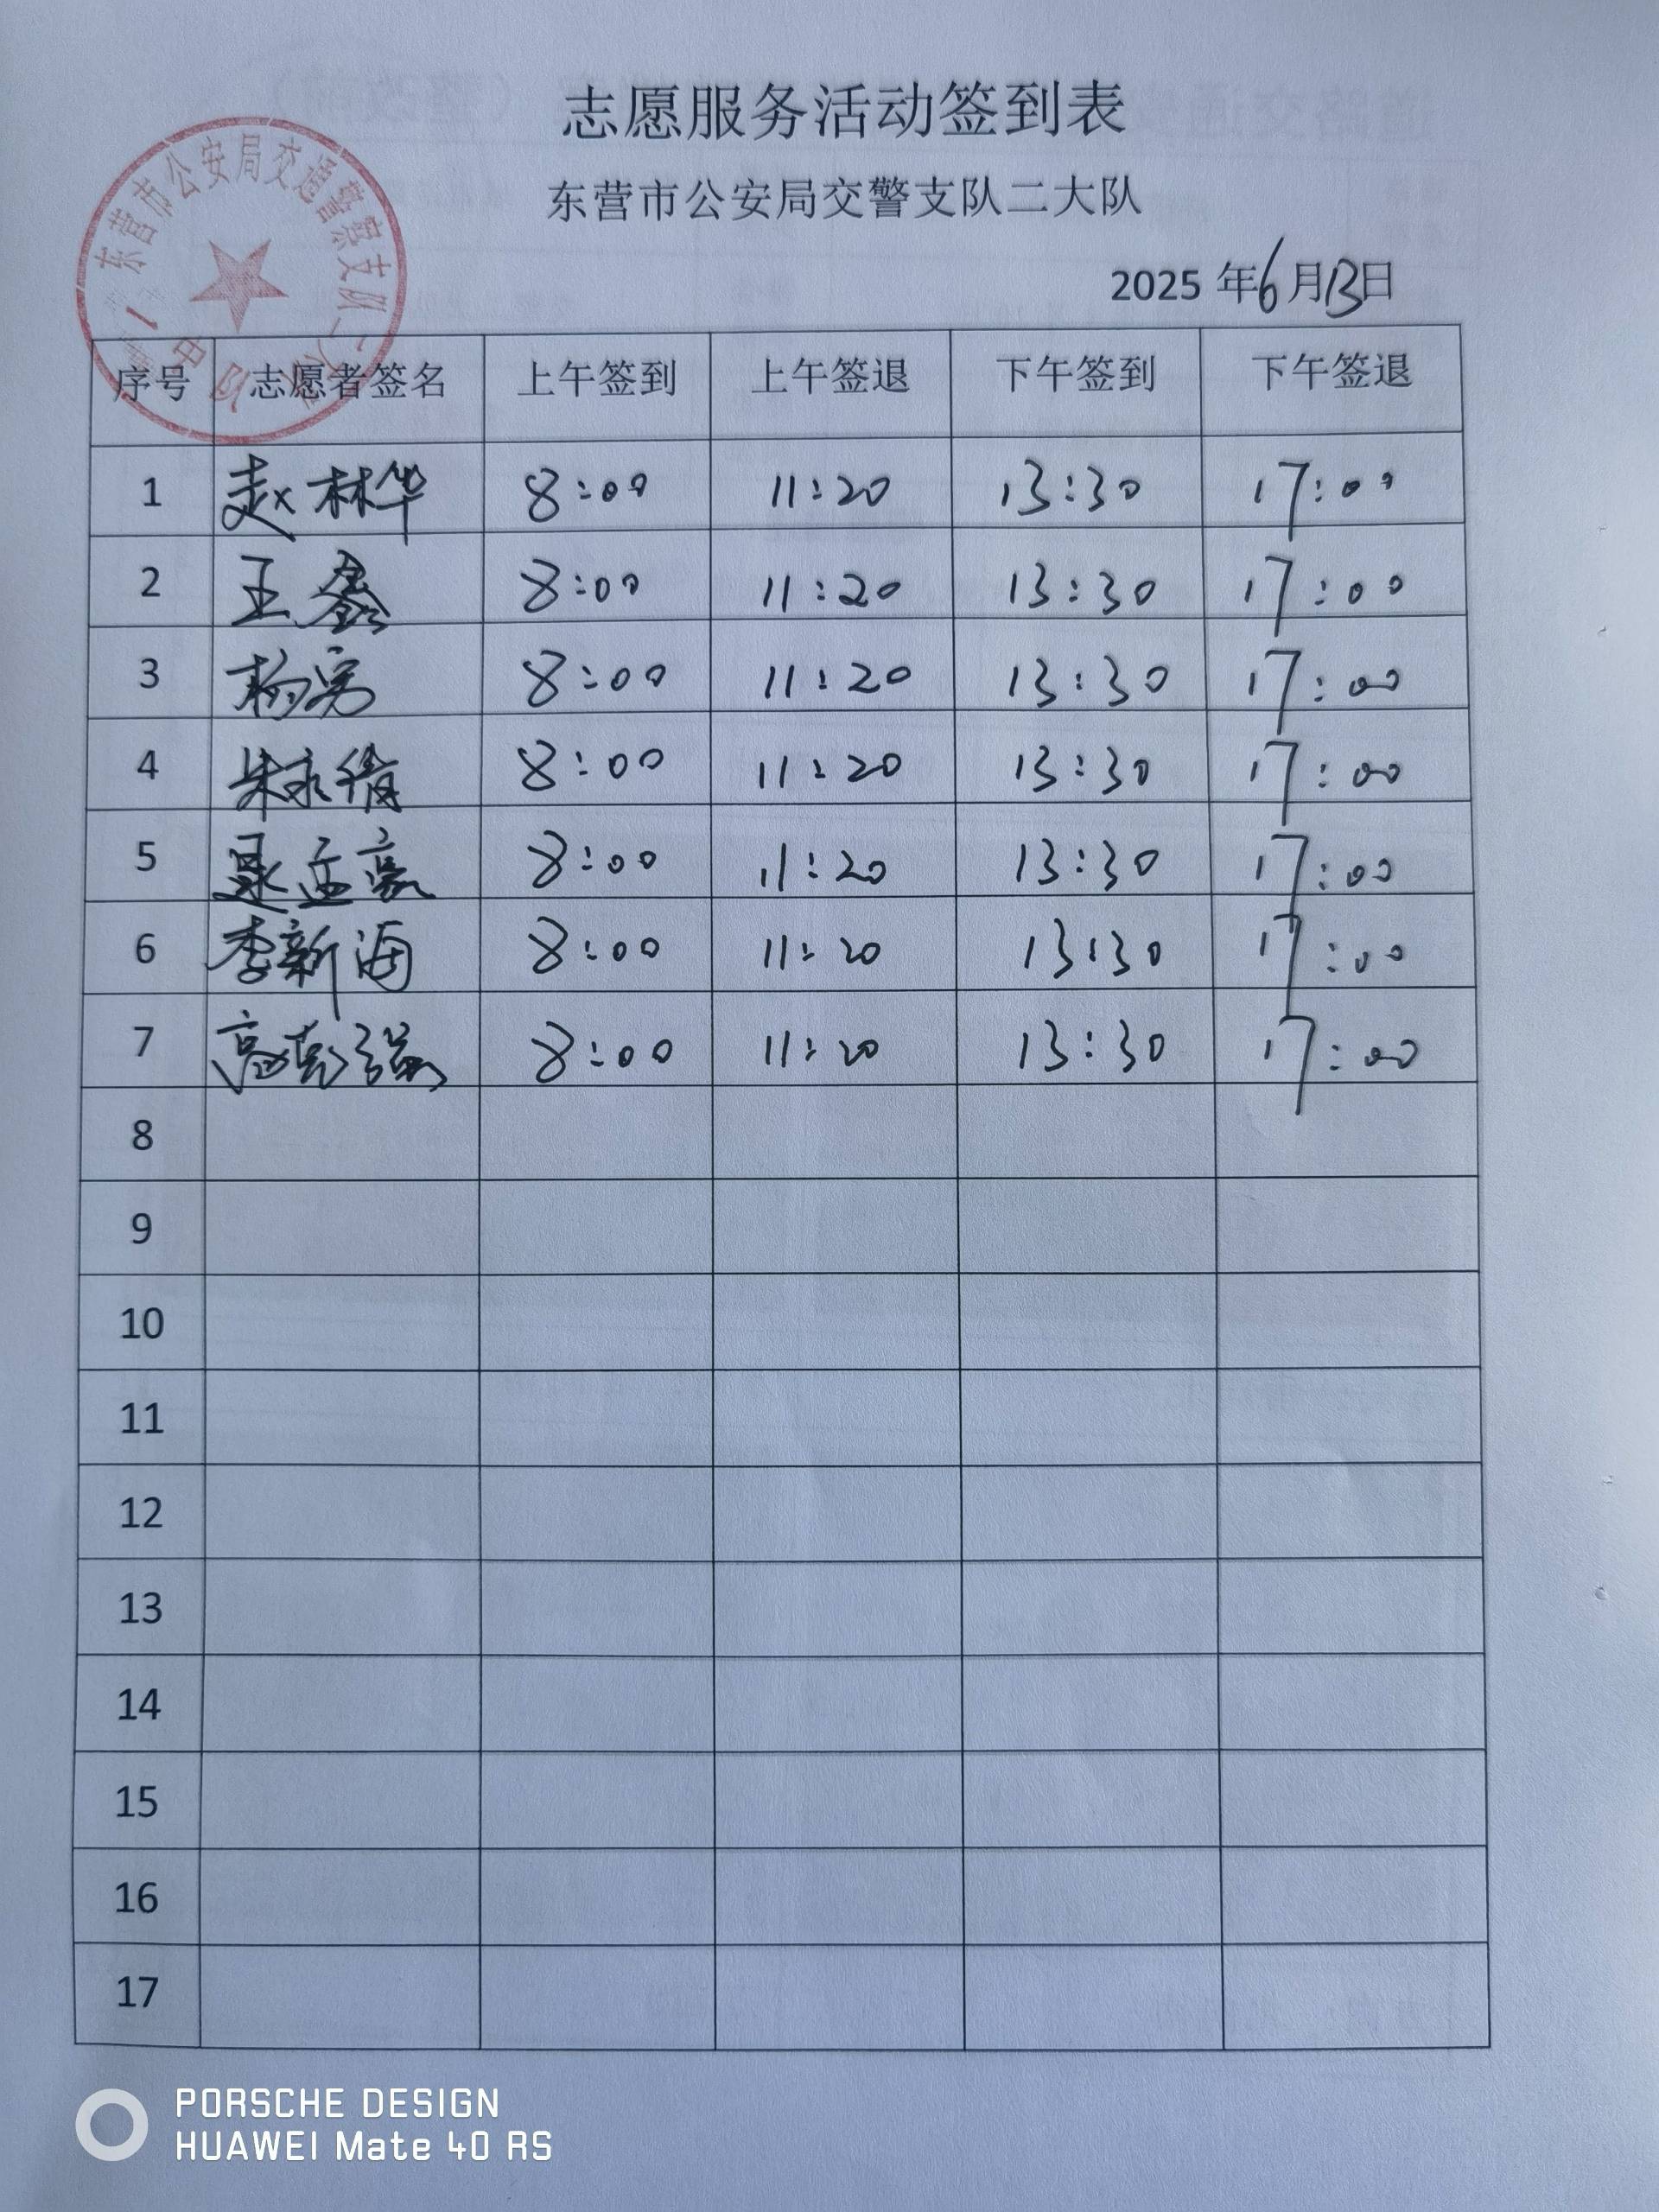 志愿服务活动签到表
东营市公安局交警支队二大队
东营市公安局交通警察支队二大队
中队
2025 年6月13日
序号 志愿者签名 上午签到 上午签退 下午签到 下午签退
1 赵林华 8:00 11:20 13:30 17:00
2 王鑫 8:00 11:20 13:30 17:00
3 杨勇 8:00 11:20 13:30 17:00
4 朱永 8:00 11:20 13:30 17:00
5 8:00 11:20 13:30 17:00
6 李新海 8:00 11:20 13:30 17:00
7 高克强 8:00 11:20 13:30 17:00
8
9
10
11
12
13
14
15
16
17
PORSCHE DESIGN
HUAWEI Mate 40 RS